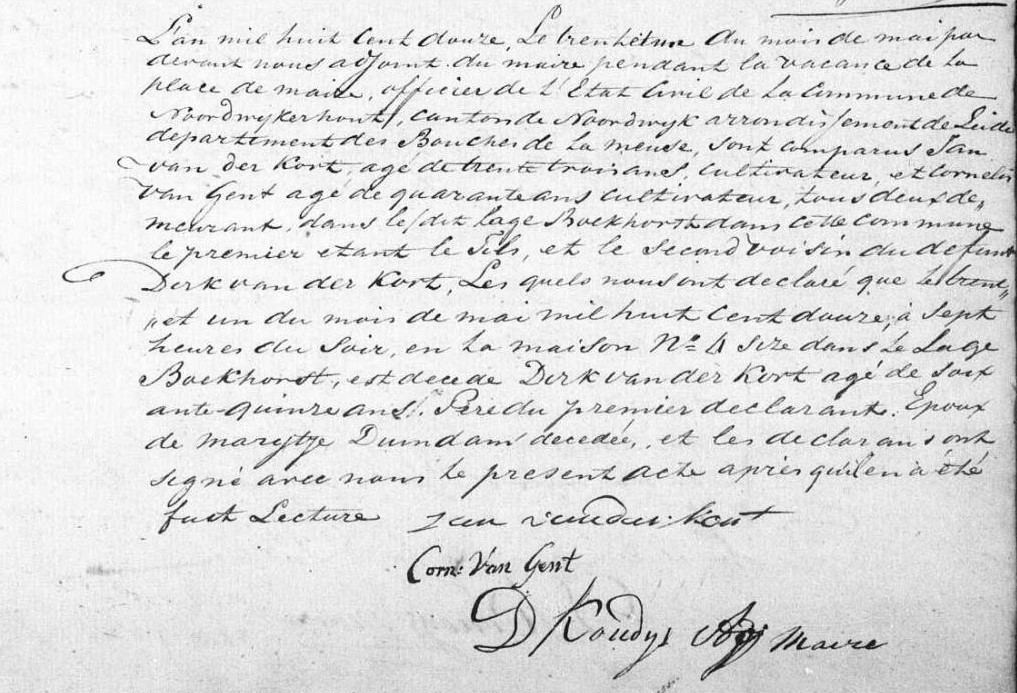 L'an mil huit Cent douze, Le trenhetun du mois de mai par
devant nous adjoint du maire pendant la vacance de la
place de maire, officier de l'Etat Civil de La Commune de
Noordwykerhout, canton de Noordwyk arrondissement de Leide
departement des Bouches de La meuse, sont comparus Jan
van der Kort, agé de trente trois ans, Cultivateur, et Cornelis
van Gent agé de quarante ans cultivateur, tous deux de„
meurant, dans le dit Lage Boekhorst dans cette commune
le premier etant le Fils, et le second voisin du defunt
Dirk van der Kort, Les quels nous ont declaré que le trent„
„et un du mois de mai mil huit Cent douze, à Sept
heures du Soir, en La maison No. 4 size dans Le Lage
Boekhorst, est decedé Dirk van der Kort agé de soix
ante-quinze ans, Pere du premier declarant, Epoux
de Marytje Duindam decedée, et les declarans ont
signé avec nous le present acte après qu'il en à été
fait Lecture Jan van der kort
Corn: Van Gent
D Koudys Adj Maire